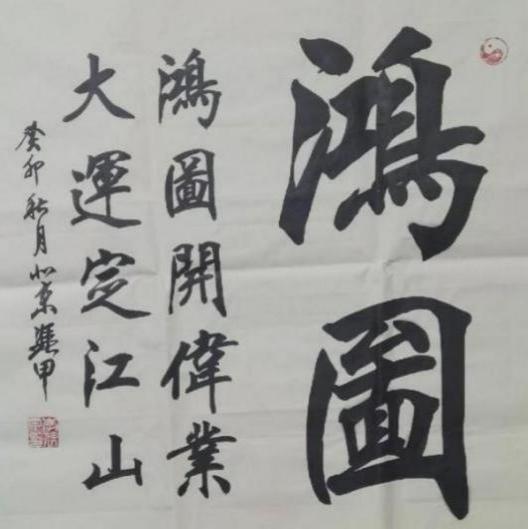 鴻圖
鴻圖開偉業
大運定江山
癸卯秋月北京龍甲